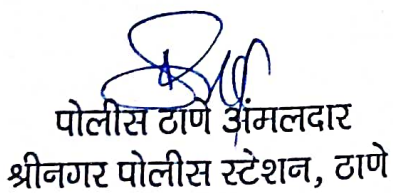 पोलीस ठाणे अंमलदार
श्रीनगर पोलीस स्टेशन, ठाणे